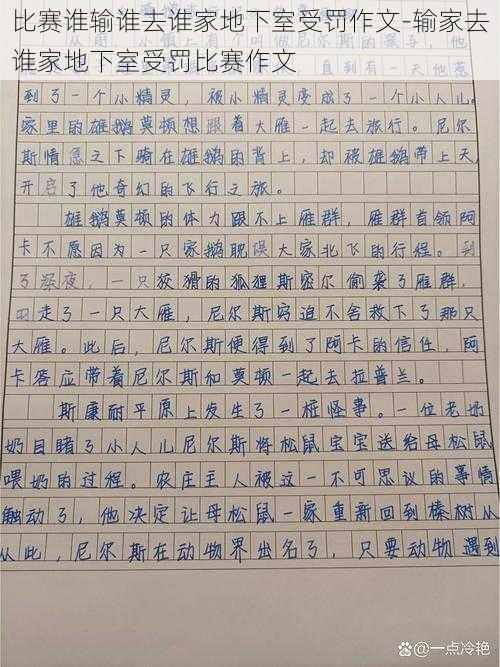 比赛谁输谁去谁家地下室受罚作文-输家去
谁家地下室受罚比赛作文
到了一个小精灵，被小精灵变成了一个小人儿。
家里的雄鹅莫顿想跟着大雁一起去旅行。尼尔
斯情急之下骑在雄鹅的背上，却被雄鹅带上天，
开启了他奇幻的飞行之旅。
雄鹅莫顿的体力跟不上雁群，雁群首领阿
卡不愿因为一只家鹅耽误大家北飞的行程。到
了深夜，一只狡猾的狐狸斯密尔偷袭了雁群，
叼走了一只大雁，尼尔斯穷追不舍救下了那只
大雁。此后，尼尔斯便得到了阿卡的信任，阿
卡答应带着尼尔斯和莫顿一起去拉普兰。
斯康耐平原上发生了一桩怪事。一位老奶
奶目睹了小人儿尼尔斯将松鼠宝宝送给母松鼠
喂奶的过程。农庄主人被这一不可思议的事情
触动了，他决定让母松鼠一家重新回到榛树丛
从此，尼尔斯在动物界出名了，只要动物遇到
@一点冷艳